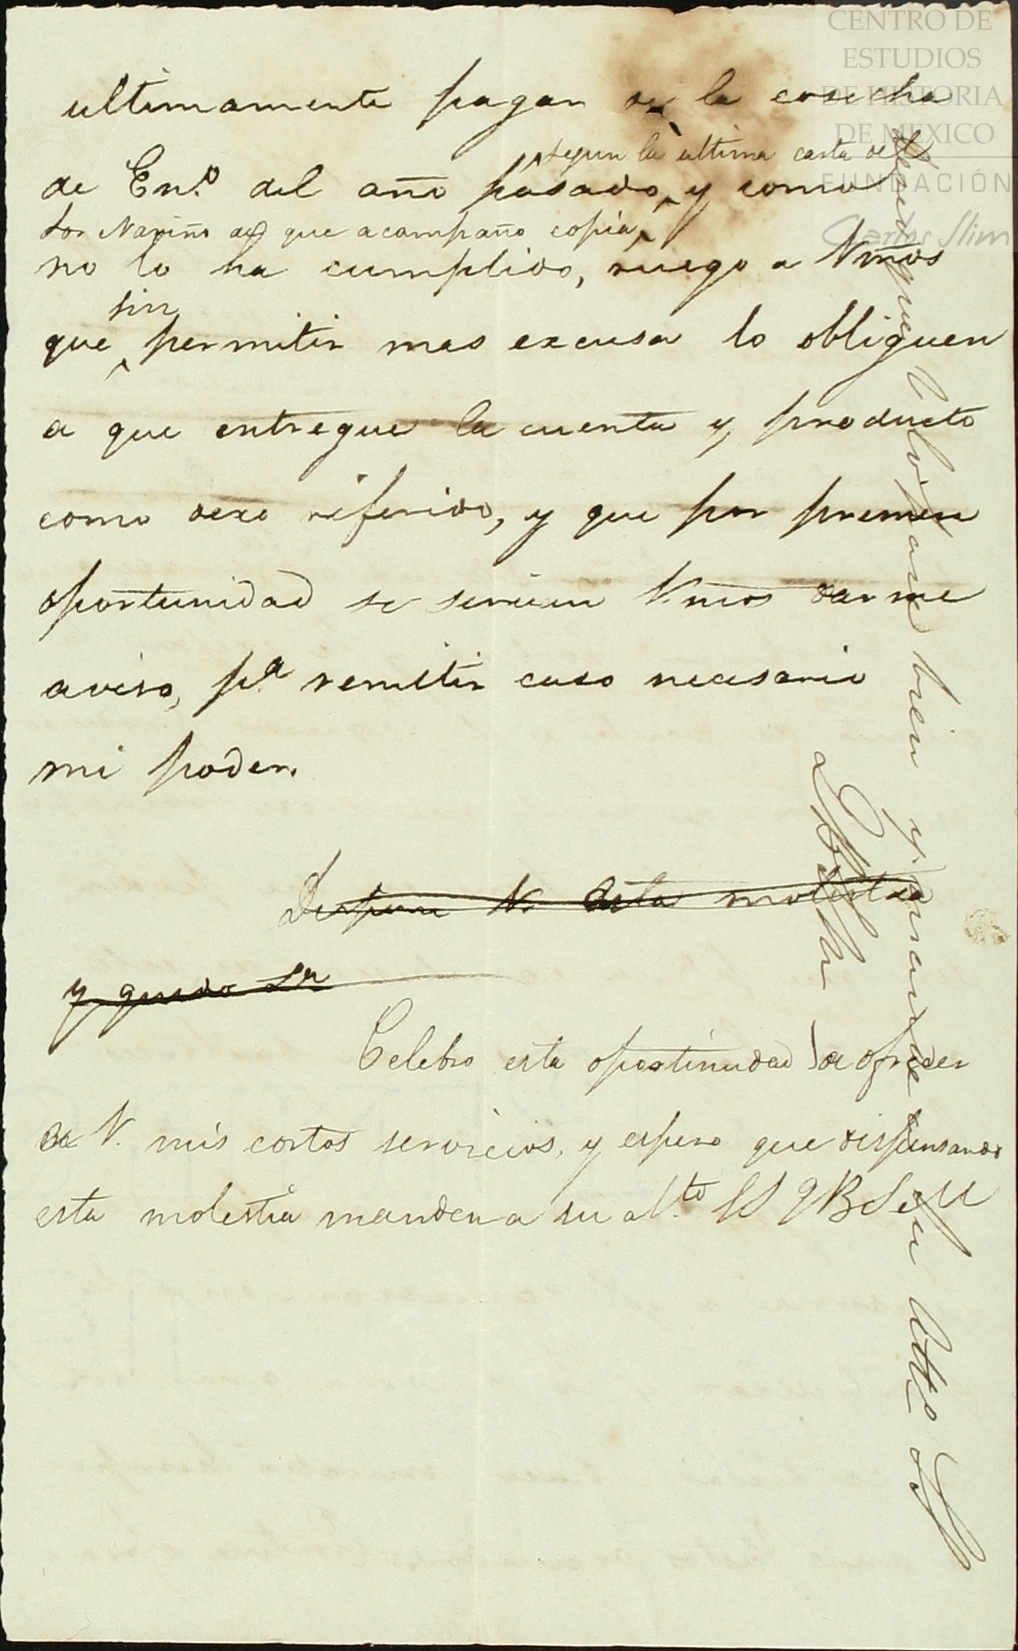 CENTRO DE
ESTUDIOS
DE HISTORIA
DE MEXICO
FUNDACIÓN
Carlos Slim
ultimamente pagar de la cosecha
segun la ultima carta de
de En.o del año pasado, y como
Sor Nariño de que acompaño copia,
no lo ha cumplido, ruego a Vmos
sin
que permitir mas excusa lo obliguen
a que entregue la cuenta y producto
como dexo referido, y que por primera
oportunidad se servirán Vmos darme
aviso, p.a remitir caso necesario
mi poder.
Dispense V. esta molestia
y quedo Sr
Celebro esta oportunidad de ofrecer
a V. mis cortos servicios, y espero que dispensando
esta molestia manden a su At.to SS QBSM
que lo pase bien y mande a su Atto SS